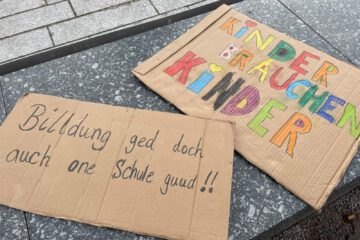 Billdung ged doch
auch one Schule guud!!
KINDER
BRAUCHEN
KINDER